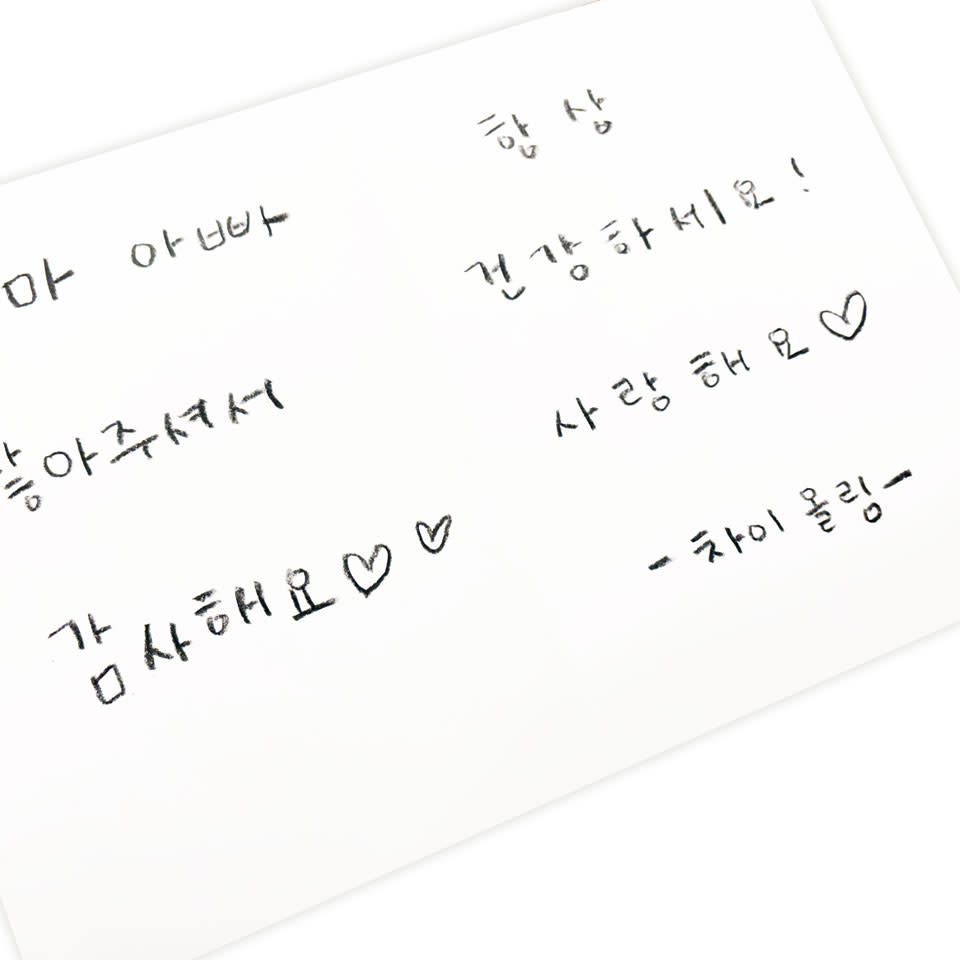 마 아빠
아주셔서
감사해요♡♡
항 상
건강하세요!
사랑해요♡
- 차이 올림 -